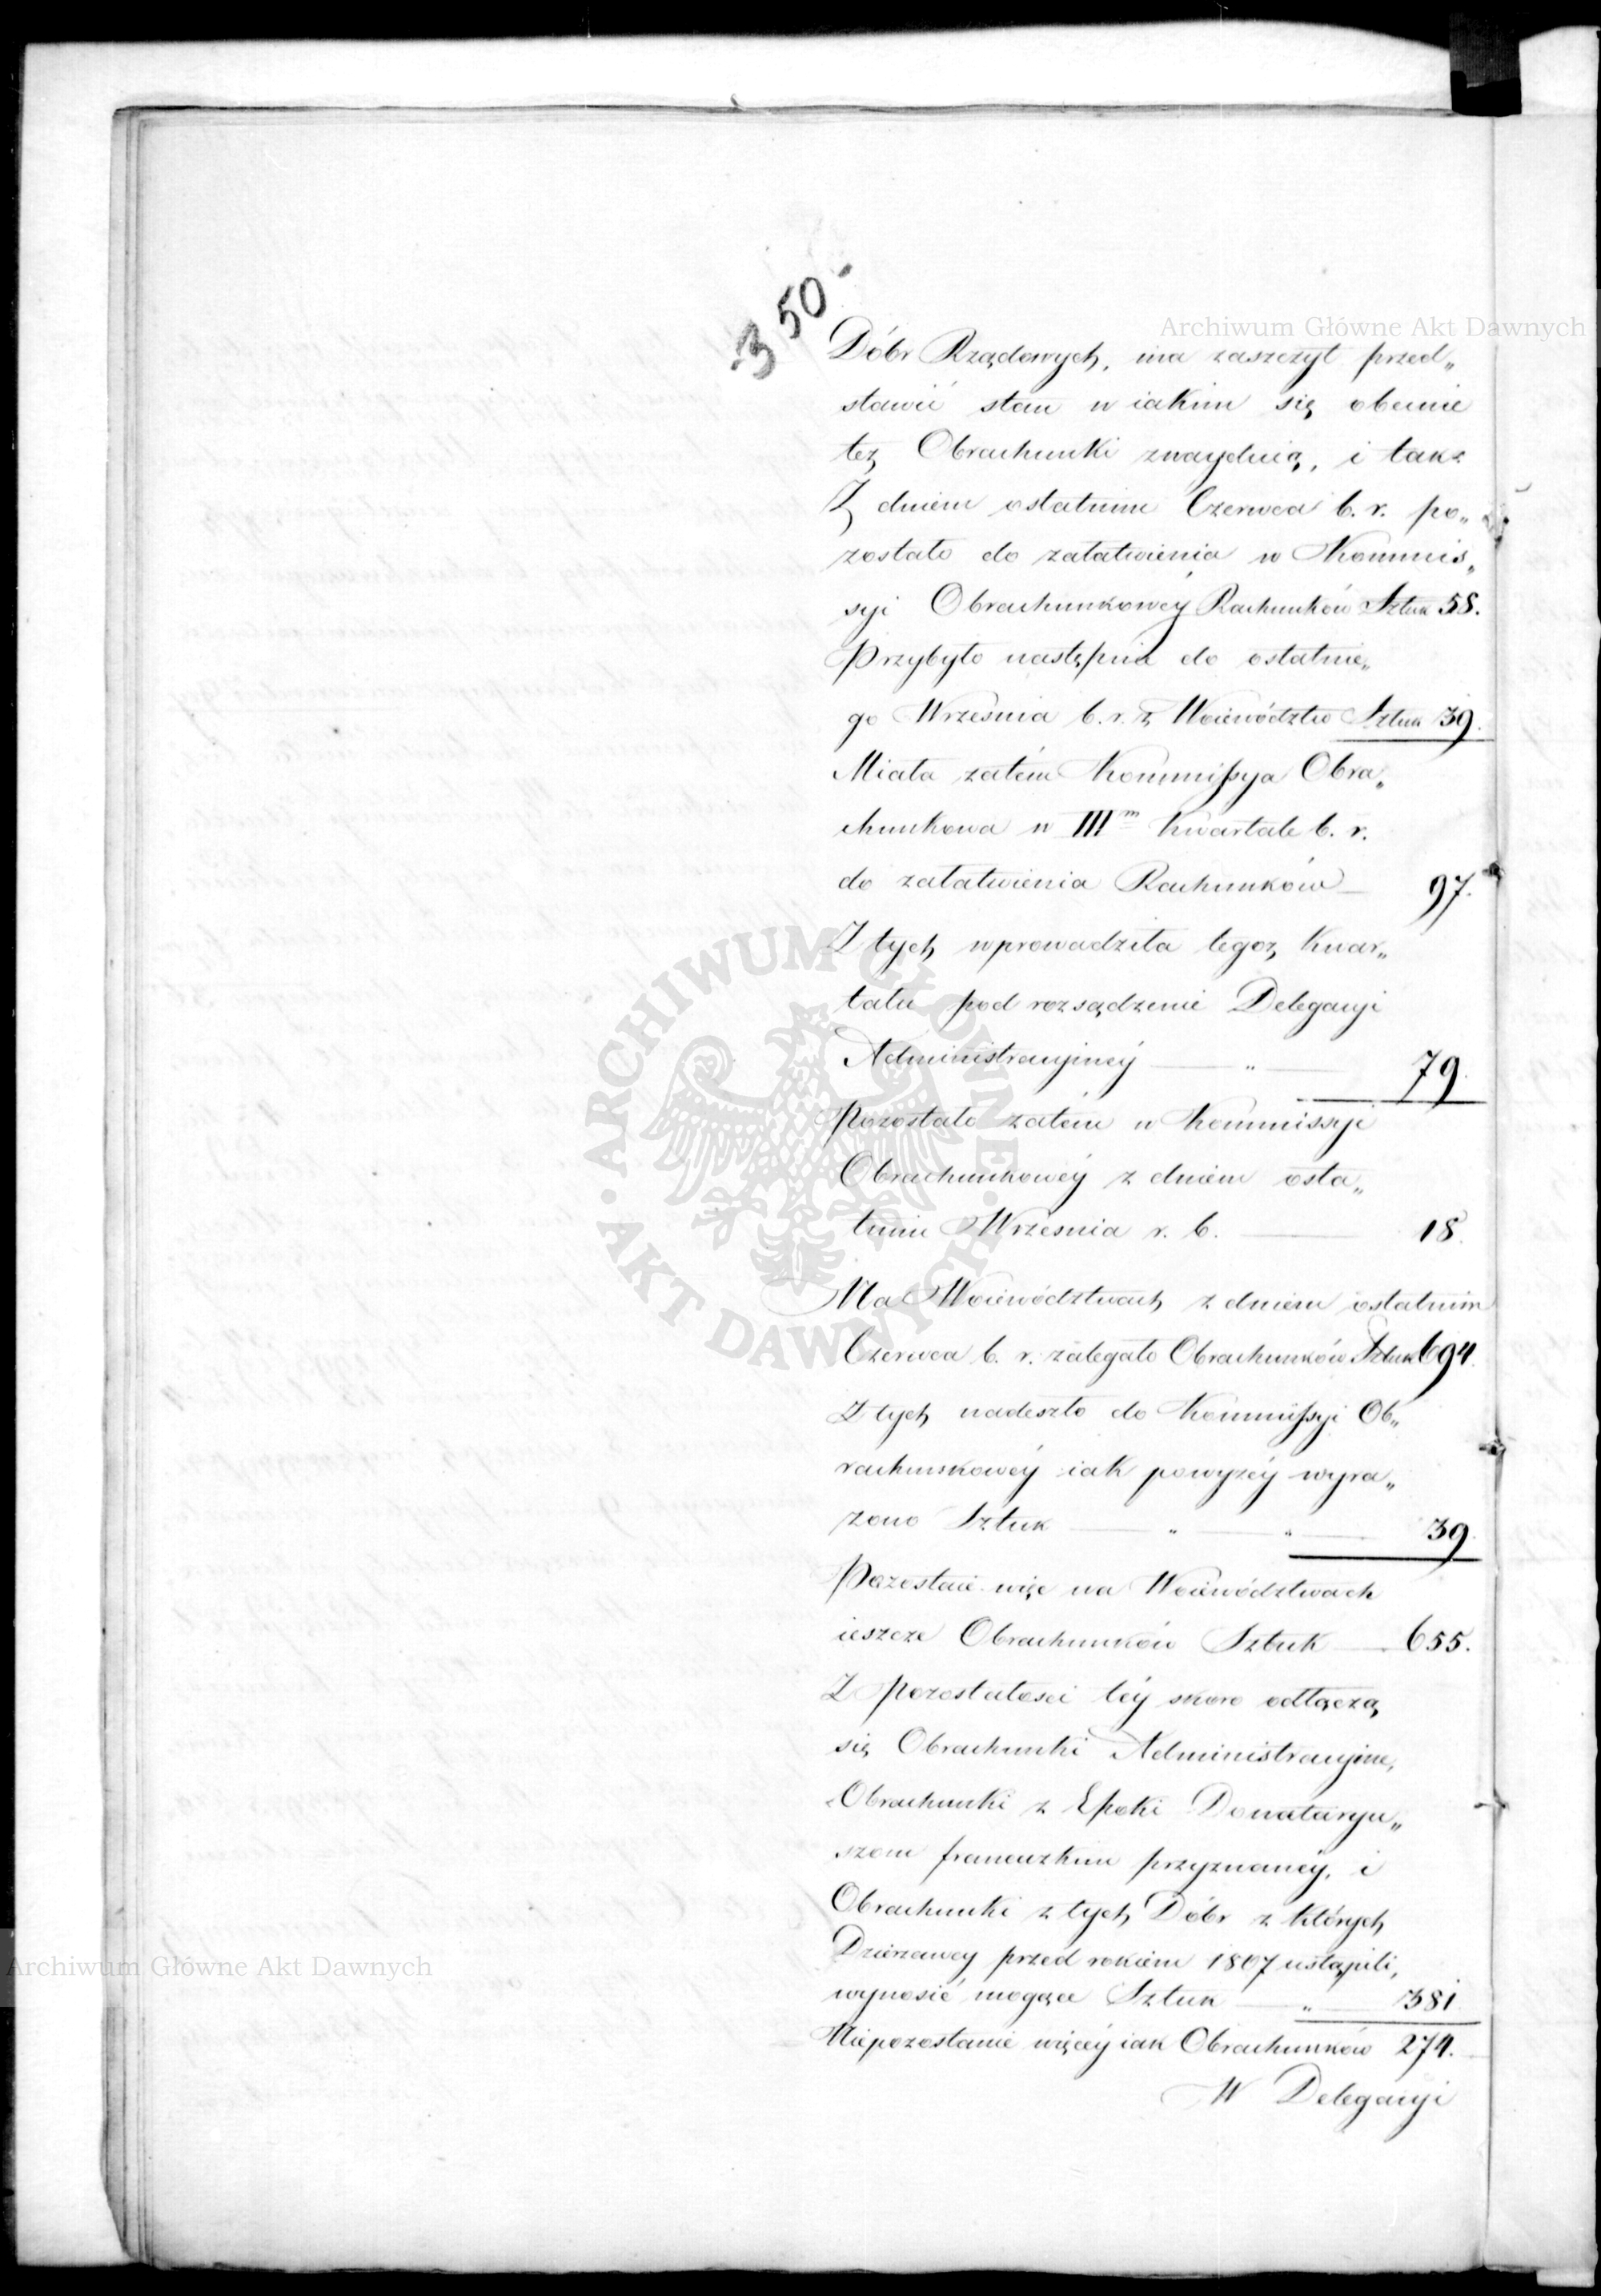 350.
Archiwum Główne Akt Dawnych
Dóbr Rządowych, ma zaszczyt przed„
stawić stan w iakim się obecnie
też Obrachunki znayduią, i tak:
Z dniem ostatnim Czerwca b. r. po„
zostało do załatwienia w Kommis„
syi Obrachunkowéy Rachunków Sztuk 58.
Przybyło następnie do ostatnie„
go Września b. r. z Woiewództw Sztuk 39.
Miała zatém Kommissya Obra„
chunkowa w IIIm Kwartale b. r.
do załatwienia Rachunków — 97.
Z tych wprowadziła tegoż Kwar„
tału pod rozsądzenie Delegacyi
Administracyjnéy — „ — 79.
Pozostało zatém w Kommissyi
Obrachunkowéy z dniem osta„
tnim Września r. b. — 18.
Na Woiewództwach z dniem ostatnim
Czerwca b. r. zalegało Obrachunków Sztuk 694.
Z tych nadeszło do Kommissyi Ob„
rachunkowéy iak powyżéy wyra„
żono Sztuk — „ — „ — 39.
Pozostaie więc na Woiewództwach
ieszcze Obrachunków Sztuk — 655.
Z pozostałości téy skoro odłączą
się Obrachunki Administracyjne,
Obrachunki z Epoki Donataryu„
szom francuzkim przyznanéy, i
Obrachunki z tych Dóbr z których
Dzierżawcy przed rokiem 1807 ustąpili,
wynosić mogące Sztuk — „ — 381
Niepozostanie więcéy iak Obrachunków 274.
W Delegacyi
ARCHIWUM GŁÓWNE AKT DAWNYCH
Archiwum Główne Akt Dawnych